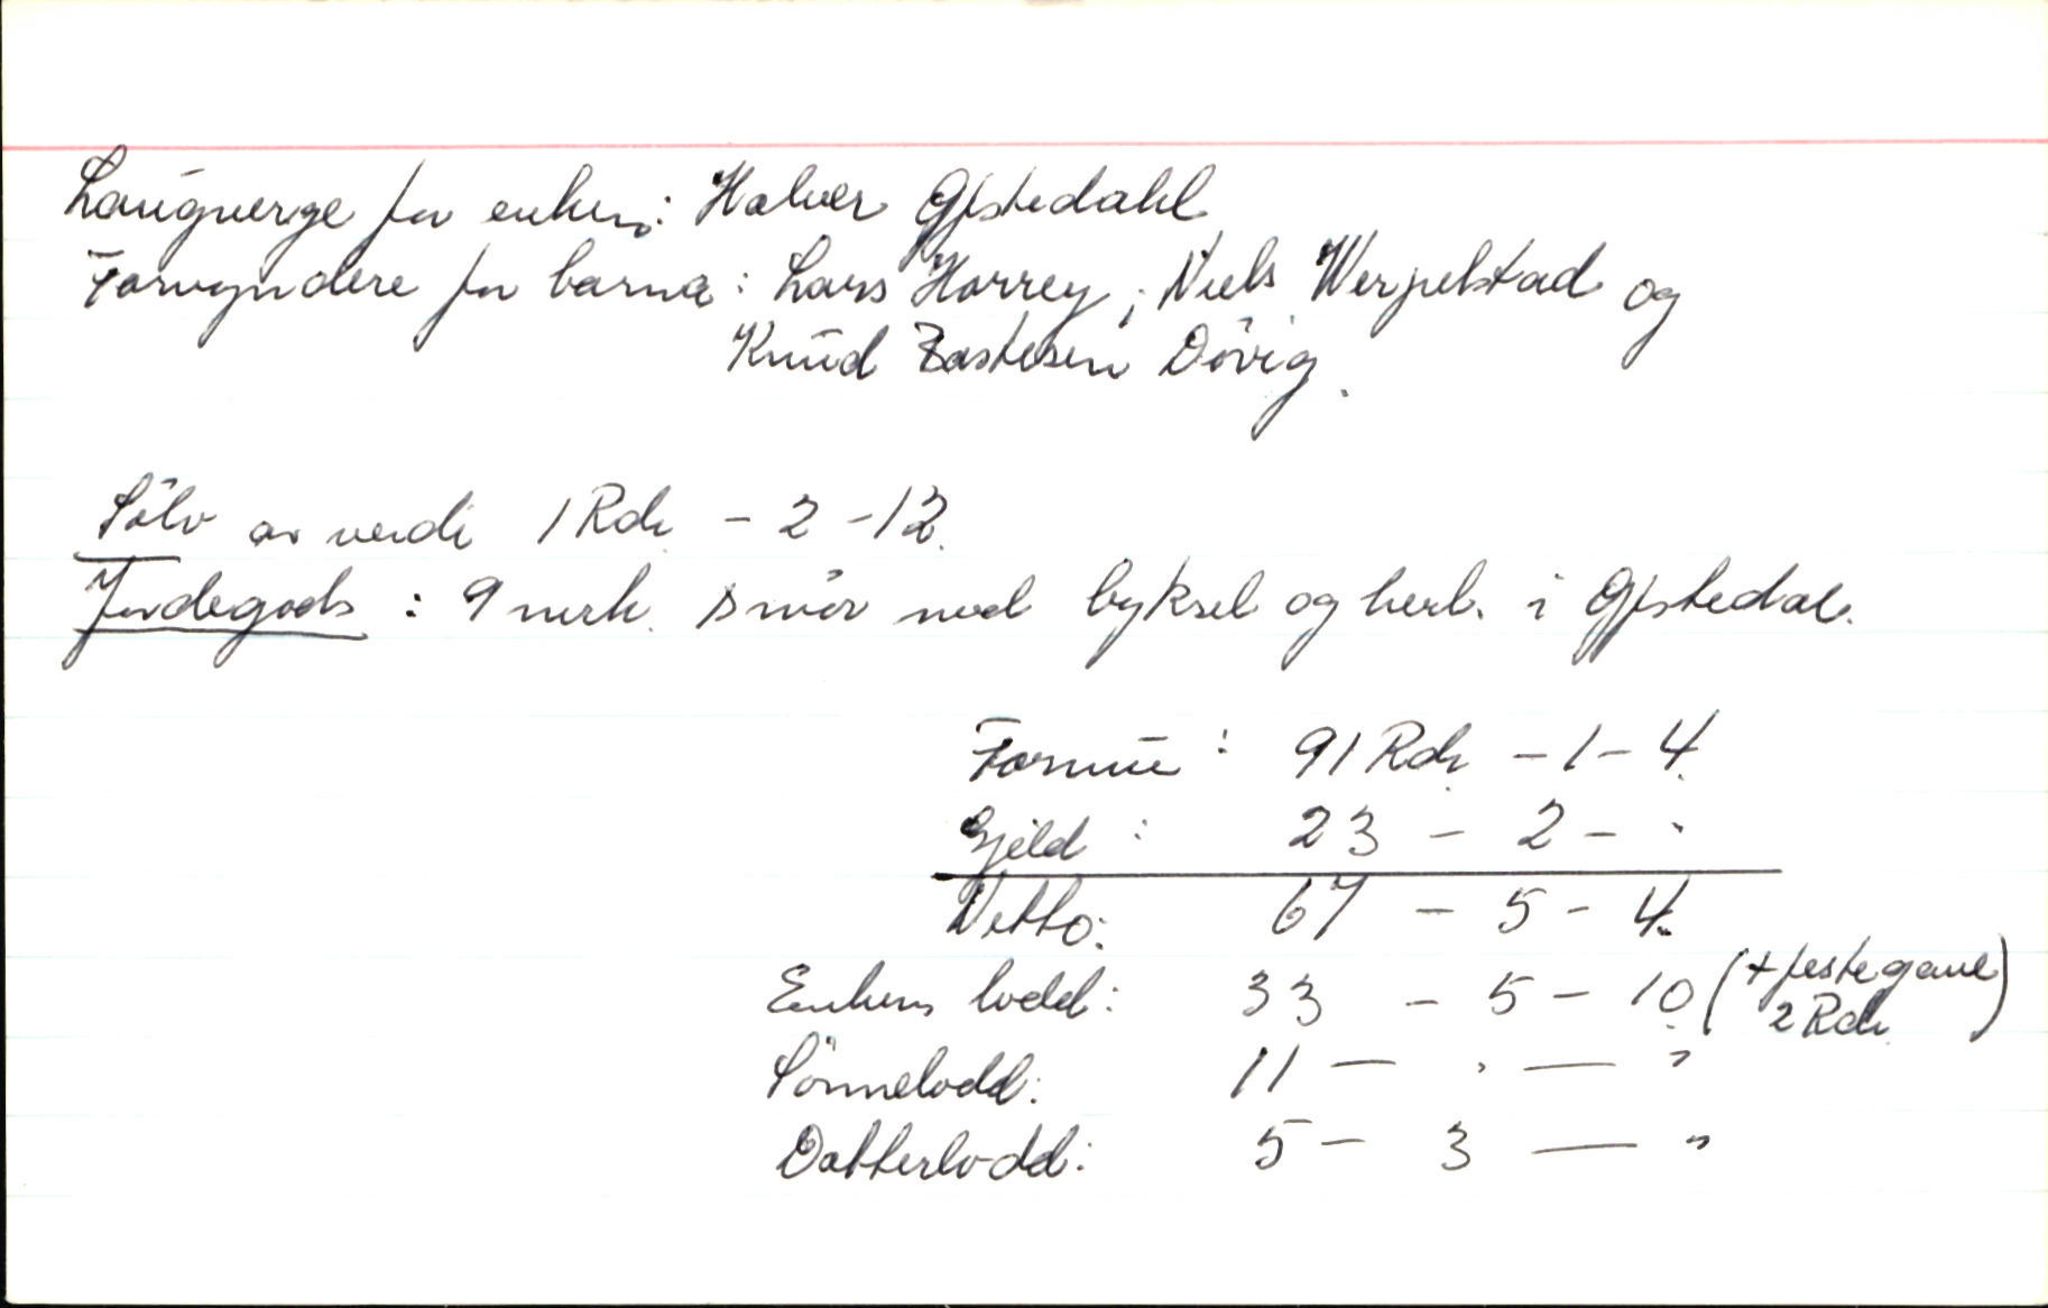 Laugverge for enken: Halver Gjstedahl
Formyndere for barna: Lars Horrey, Niels Werpelstad og
Knud Tostesen Dövig.
Sölv av verdi 1 Rdr. - 2 - 12.
Jordegods: 9 merk. smör med byksel og herl. i Gjstedal.
Formue: 91 Rdr. - 1 - 4.
Gjeld: 23 - 2 - "
Netto: 67 - 5 - 4.
Enkens lodd: 33 - 5 - 10. (+ festegave
2 Rdr.)
Sönnelodd: 11 - " - "
Datterlodd: 5 - 3 - "